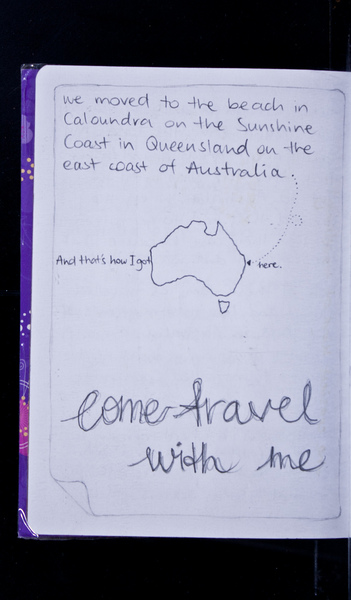 we moved to the beach in
Caloundra on the Sunshine
Coast in Queensland on the
east coast of Australia.
And that's how I got here.
come travel
with me